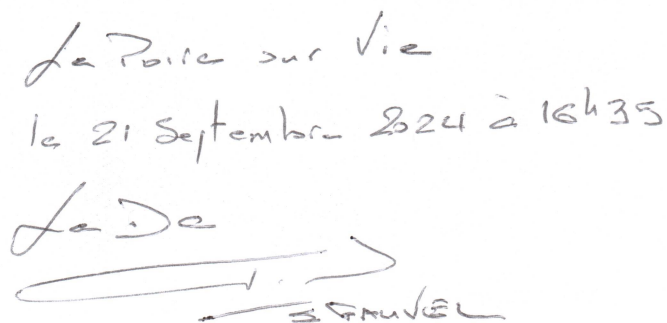 Le Poiré sur Vie
le 21 Septembre 2024 à 16h35
Le DC
S GAUVEL